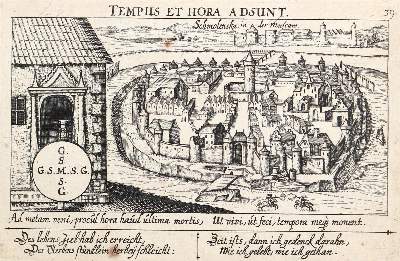 TEMPUS ET HORA ADSUNT.
Schmolensko in der Moscow.
G.
S
G.S.M.S.G.
S
G.
Ad metam veni, procul hora haud ultima mortis, Ut vixi, ut feci, tempora meq; monent.
Des lebens Ziel hab ich erreicht,
Des Sterbens stündlein herbey schleicht:
Zeit ists, dann ich gedenck daran,
Wie ich gelebt, wie ich gethan.